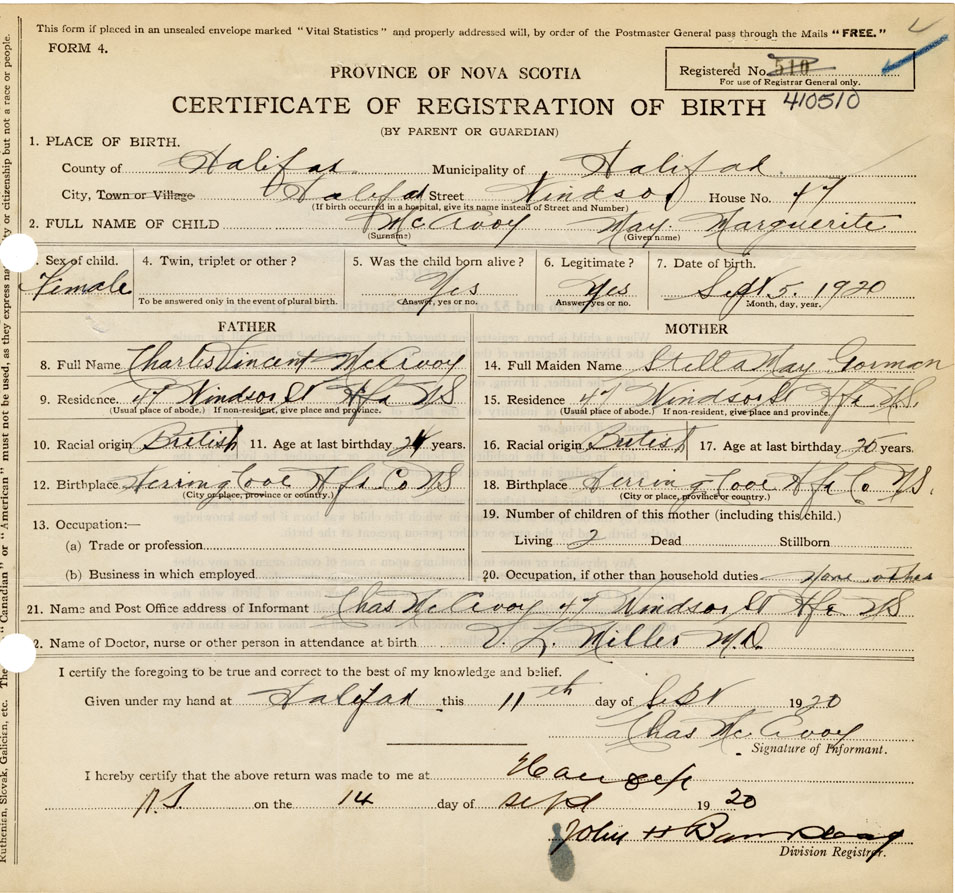 This form if placed in an unsealed envelope marked "Vital Statistics" and properly addressed will, by order of the Postmaster General pass through the Mails "FREE."
FORM 4.
Registered No. 510
For use of Registrar General only.
PROVINCE OF NOVA SCOTIA
CERTIFICATE OF REGISTRATION OF BIRTH 410510
(BY PARENT OR GUARDIAN)
1. PLACE OF BIRTH.
County of Halifax Municipality of Halifax
City, Town or Village Halifax Street Windsor House No. 47
(If birth occurred in a hospital, give its name instead of Street and Number)
2. FULL NAME OF CHILD McEvoy May Marguerite
(Surname) (Given name)
Sex of child. 4. Twin, triplet or other? 5. Was the child born alive? 6. Legitimate? 7. Date of birth.
Female Yes Yes Sept 5. 1920
To be answered only in the event of plural birth. Answer, yes or no. Answer, yes or no. Month, day, year.
FATHER MOTHER
8. Full Name Charles Vincent McEvoy 14. Full Maiden Name Stella May Gorman
9. Residence. 47 Windsor St Hfx NS 15. Residence 47 Windsor St Hfx NS.
(Usual place of abode.) If non-resident, give place and province. (Usual place of abode.) If non-resident, give place and province.
10. Racial origin British 11. Age at last birthday years. 16. Racial origin British 17. Age at last birthday 20 years.
12. Birthplace Herring Cove Hfx Co NS 18. Birthplace Herring Cove Hfx Co NS.
(City or place, province or country.) (City or place, province or country.)
13. Occupation:— 19. Number of children of this mother (including this child.)
(a) Trade or profession Living 2 Dead Stillborn
(b) Business in which employed 20. Occupation, if other than household duties None other
21. Name and Post Office address of Informant Chas McEvoy 47 Windsor St Hfx NS
2. Name of Doctor, nurse or other person in attendance at birth V. L. Miller M.D.
I certify the foregoing to be true and correct to the best of my knowledge and belief.
Given under my hand at Halifax this 11th day of Sept 1920
Chas McEvoy
Signature of Informant.
I hereby certify that the above return was made to me at
N.S on the 14 day of Sept 1920
John H
Division Registrar.
"Canadian" or "American" must not be used, as they express
or citizenship but not a race or people.
Ruthenian, Slovak, Galician, etc. The